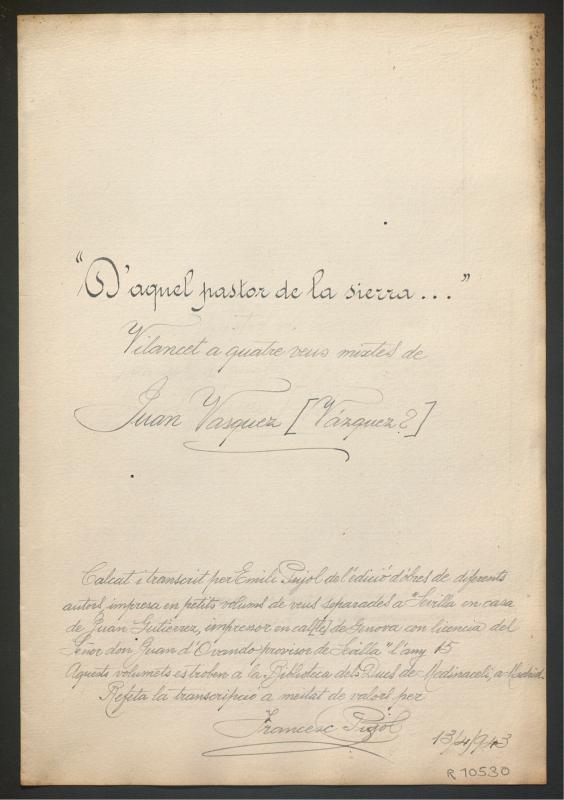 "D'aquel pastor de la sierra..."
Vilancet a quatre veus mixtes de
Juan Vasquez [Vázquez?]
Calcat i transcrit per Emili Pujol de l'edició d'obres de diferents
autors, impresa en petits volums de veus separades a "Sevilla en casa
de Juan Gutiérrez, impressor en cal[le] de Genova con licencia del
Señor don Juan d'Ovando provisor de Sevilla" l'any 15
Aquests volumets es troben a la Biblioteca dels Ducs de Medinaceli, a Madrid.
Refeta la transcripció a meitat de valors per
Francesc Pujol
13/4/943
R 10530